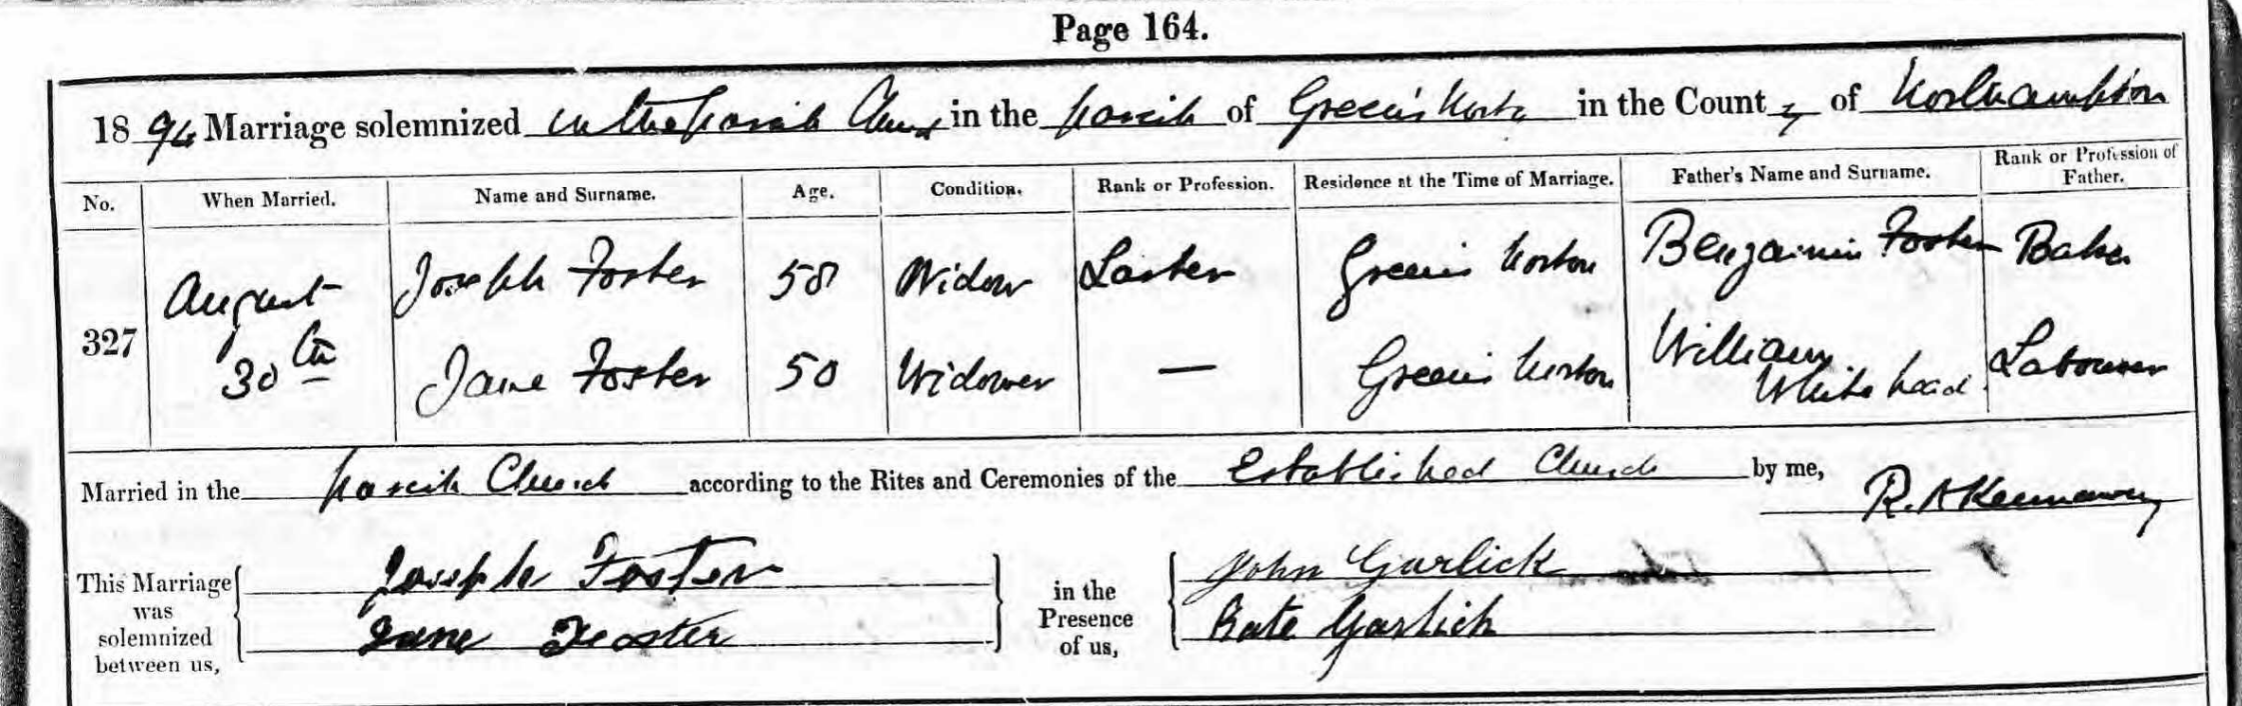 Page 164.
1894 Marriage solemnized in the parish Church in the parish of Green's Norton in the County of Northampton
No. When Married. Name and Surname. Age. Condition. Rank or Profession. Residence at the Time of Marriage. Father's Name and Surname. Rank or Profession of Father.
327 August 30th
Joseph Foster 58 Widow Laster Greens Norton Benjamin Foster Baker
Jane Foster 50 Widower — Greens Norton William Whitehead Labourer
Married in the parish Church according to the Rites and Ceremonies of the Established Church by me, R. A Kennaway
This Marriage was solemnized between us,
Joseph Foster
Jane Foster
in the Presence of us,
John Garlick
Kate Garlick